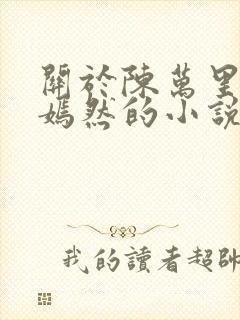 關於陳萬里
嫣然的小說
我的讀者超帥